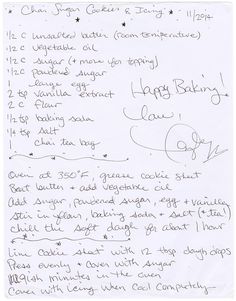 Chai Sugar Cookies & Icing
11/2014
1/2 c unsalted butter (room temperature)
1/2 c vegetable oil
1/2 c sugar (+ more for topping)
1/2 c powdered sugar
1 large egg
2 tsp vanilla extract
2 c flour
1/2 tsp baking soda
1/4 tsp salt
1 chai tea bag
Happy Baking!
Love,
Oven at 350°F, grease cookie sheet
Beat butter + add vegetable oil
Add sugar, powdered sugar, egg + vanilla
stir in flour, baking soda + salt (+ tea!)
chill the soft dough for about 1 hour
Line cookie sheet with 12 tbsp dough drops
Press evenly + cover with sugar
minutes in the oven
Cover with icing when cool completely